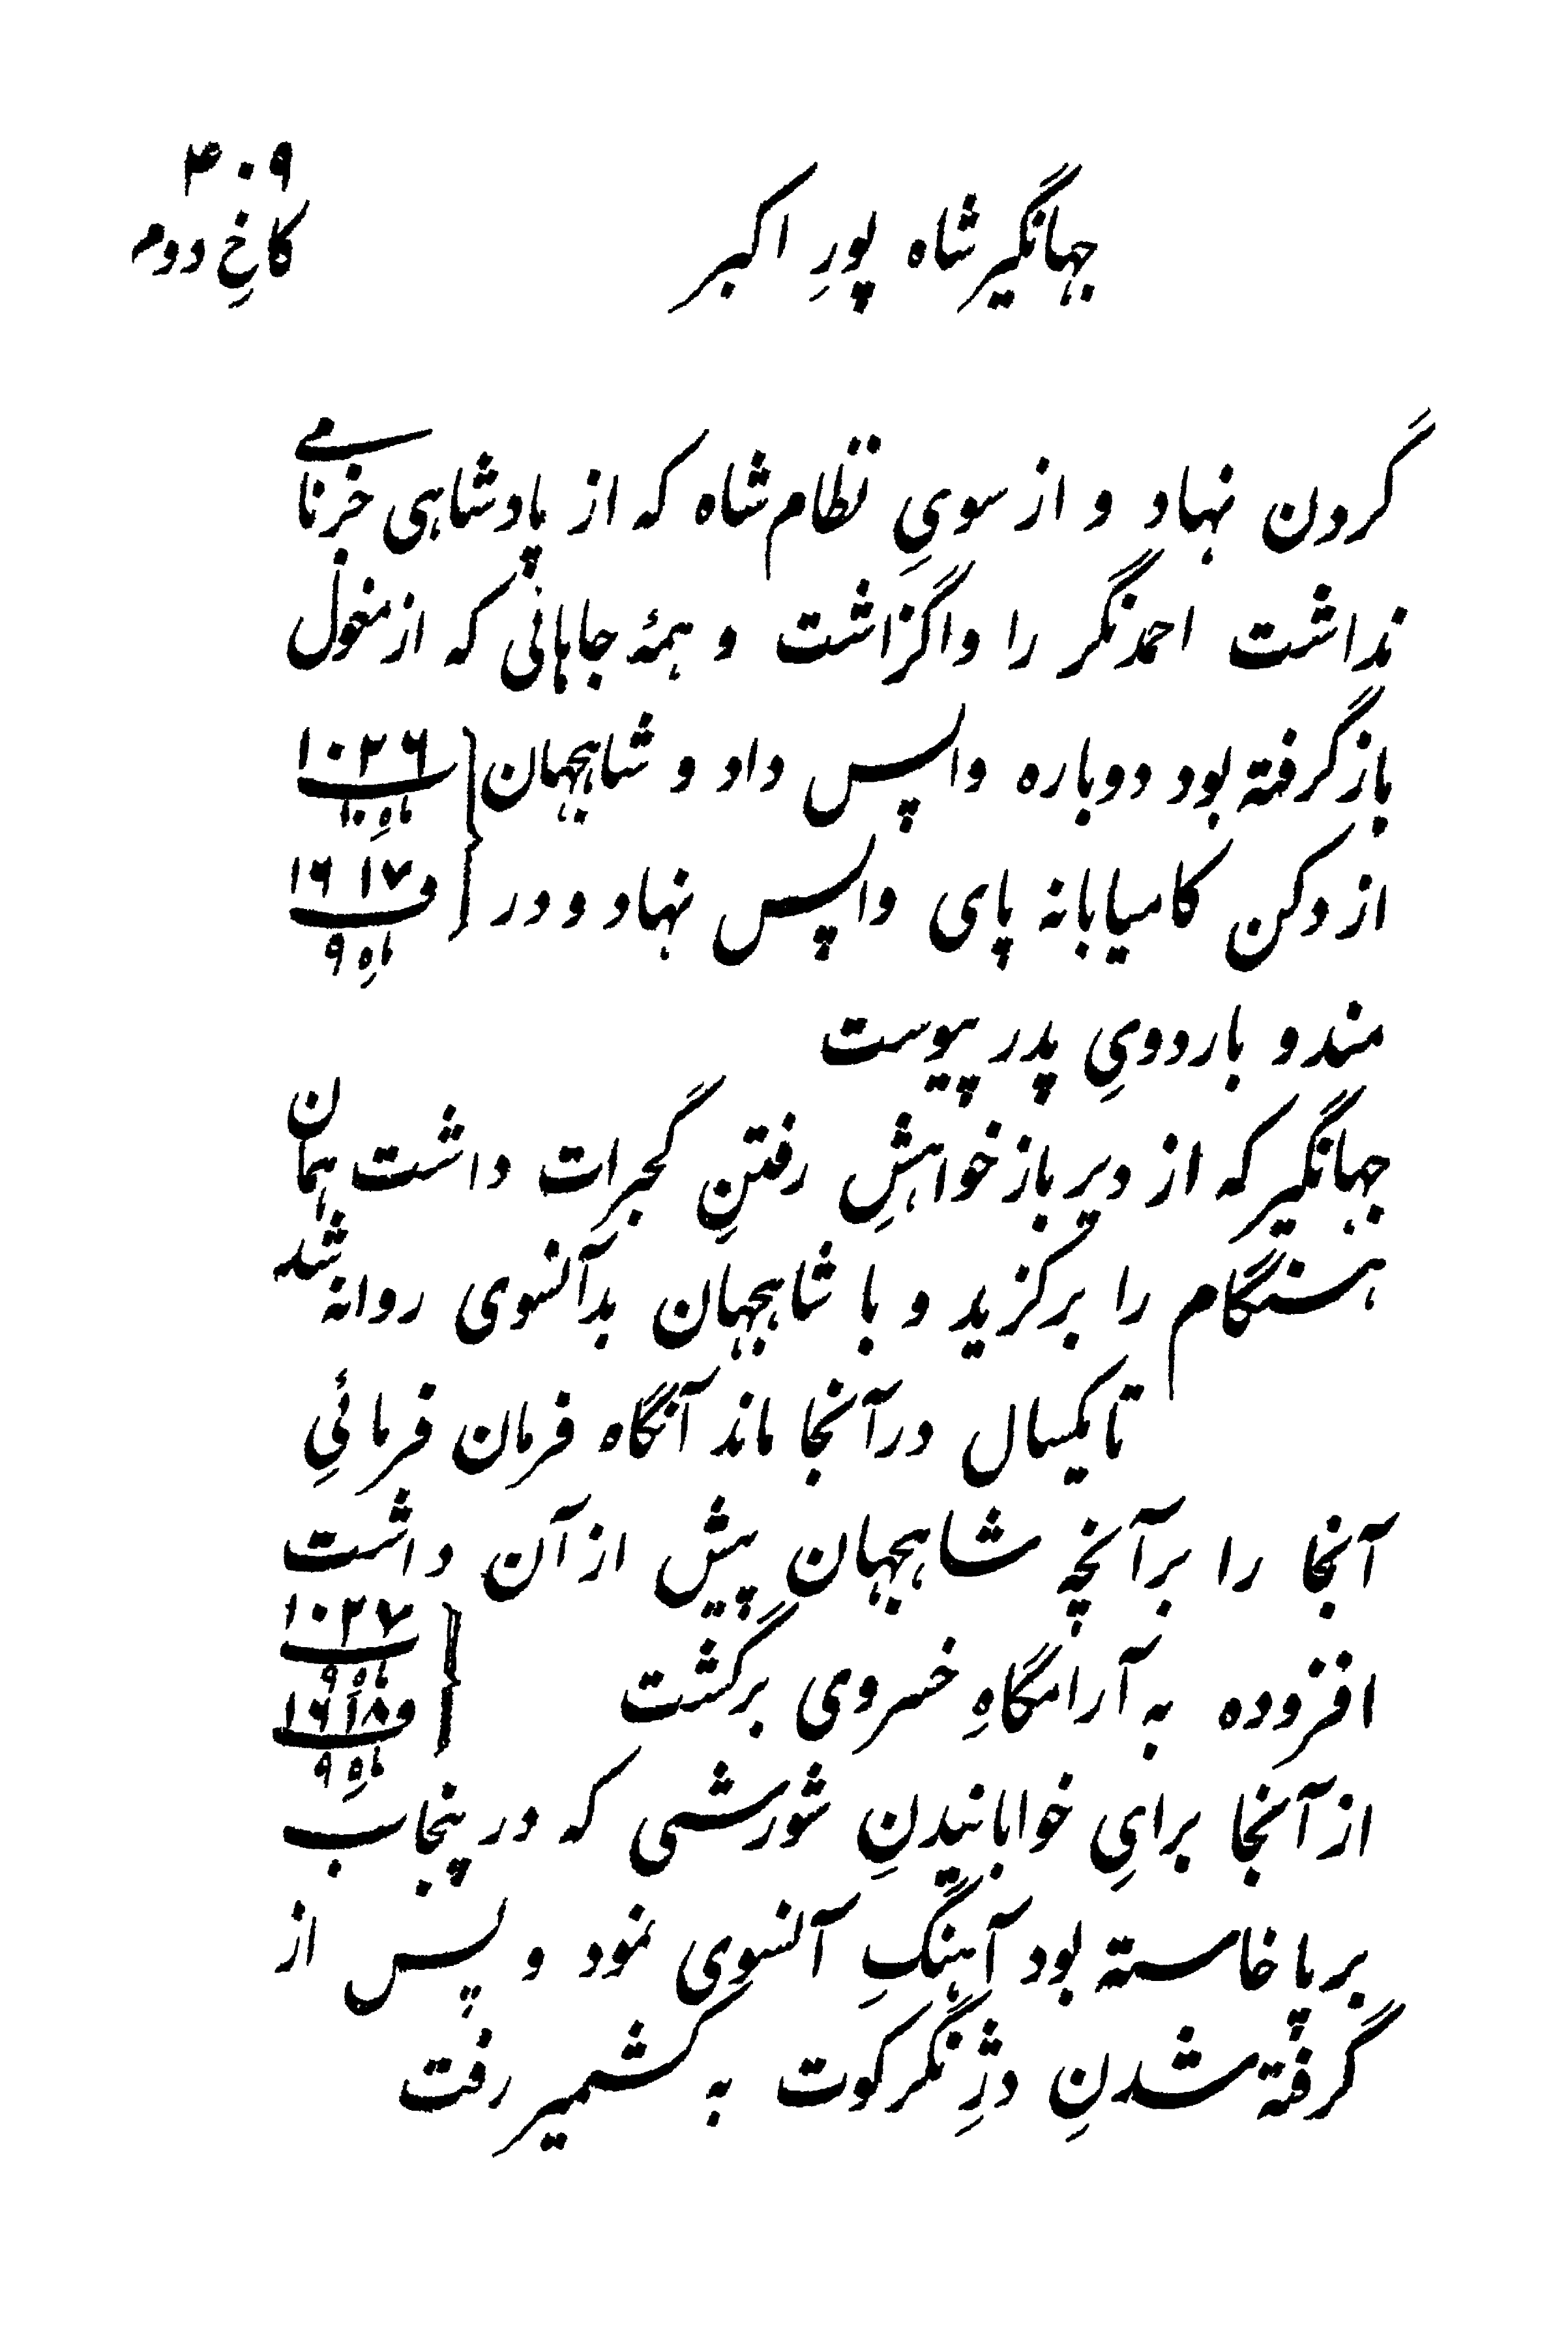 ۴۰۹
کاخِ دوم
جهانگیر شاه پورِ اکبر
گردن نهاد و از سویِ نظام شاه که از پادشاهی خبر نامی
نداشت احمدنگر را واگزاشت و همهٔ جاهائی که از مغول
باز گرفته بود دوباره واپس داد و شاهجهان } ۱۰۲۶ ماهِ ۱۰
از دکن کامیابانه پای واپس نهاد و در } و ۱۶۱۷ ماهِ ۹
مندو باردویِ پدر پیوست
جهانگیر که از دیر باز خواهشِ رفتنِ گجرات داشت همان
هنگام را برگزید و با شاهجهان بدآنسوی روانه شد
تا یکسال در آنجا ماند آنگاه فرمان فرمائیِ
آنجا را بر آنچه شاهجهان پیش از آن داشت
افزوده به آرامگاهِ خسروی برگشت } ۱۰۲۷ ماه ۹ و ۱۶۱۸ ماهِ ۹
از آنجا برایِ خوابانیدنِ شورشی که در پنجاب
بر پا خاسته بود آهنگِ آنسوی نمود و پس از
گرفته شدنِ دژِ نگرکوت به کشمیر رفت